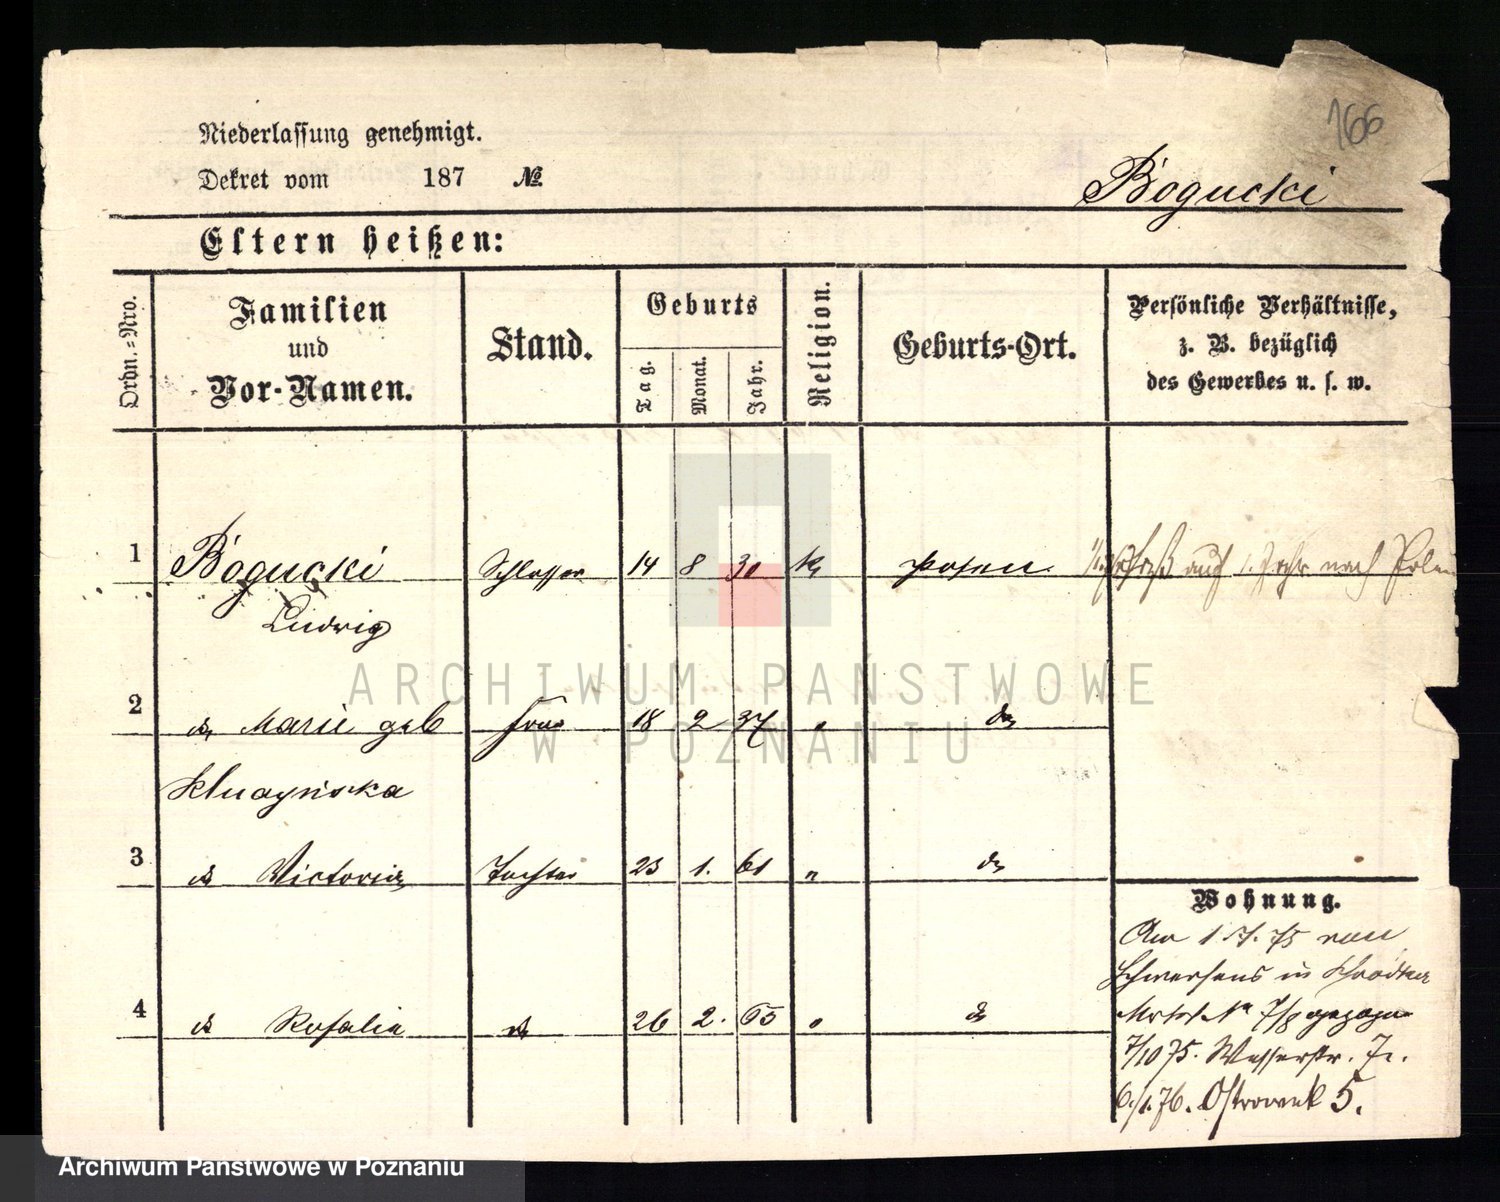 166
Niederlassung genehmigt.
Dekret vom 187 №
Bogucki
Eltern heißen:
Ordn.=Nro.
Familien und Vor-Namen.
Stand.
Geburts
Tag.
Monat.
Jahr.
Religion.
Geburts-Ort.
Persönliche Verhältnisse,
z. B. bezüglich
des Gewerbes u. s. w.
1 Bogucki Schlosser 14 8 30 K Posen auf 1 Jahr nach Polen
Ludwig
2 do Marie geb Frau 18 2 37 " do
3 do Victoria Tochter 23 1. 61 " do
4 do Rosalie do 26 2. 65 " do
Wohnung.
Am 1.7.75 von
Schwersens in Schrodka
Markt № 7/8 gezogen
7/10 75. Wasserstr. 7.
6./1.76. Ostrowek 5.
ARCHIWUM PAŃSTWOWE
W POZNANIU
Archiwum Państwowe w Poznaniu